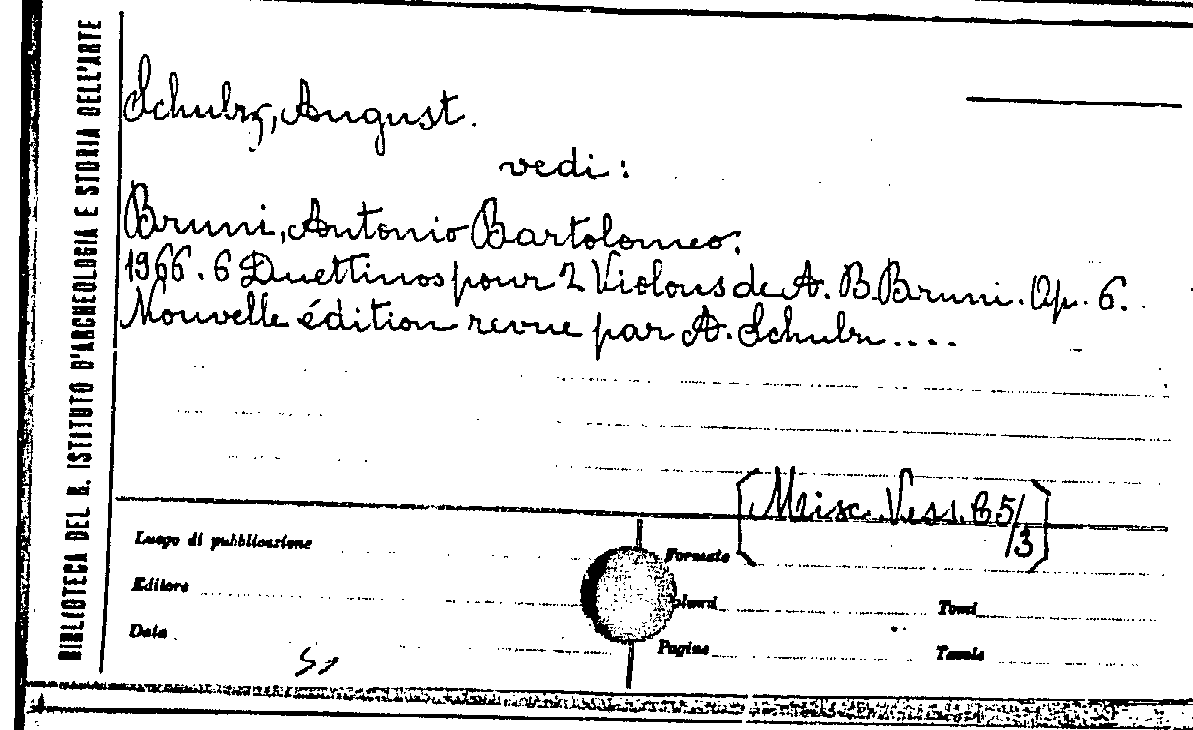 BIBLIOTECA DEL R. ISTITUTO D'ARCHEOLOGIA E STORIA DELL'ARTE
Schulz, August.
vedi:
Bruni, Antonio Bartolomeo.
1966. 6 Duettinos pour 2 Violons de A. B. Bruni. Op. 6.
Nouvelle édition revue par A. Schulz....
[Misc. Vess. B 5/3]
Luogo di pubblicazione
Formato
Editore
Volumi
Tomi
Data
Pagine
Tavole